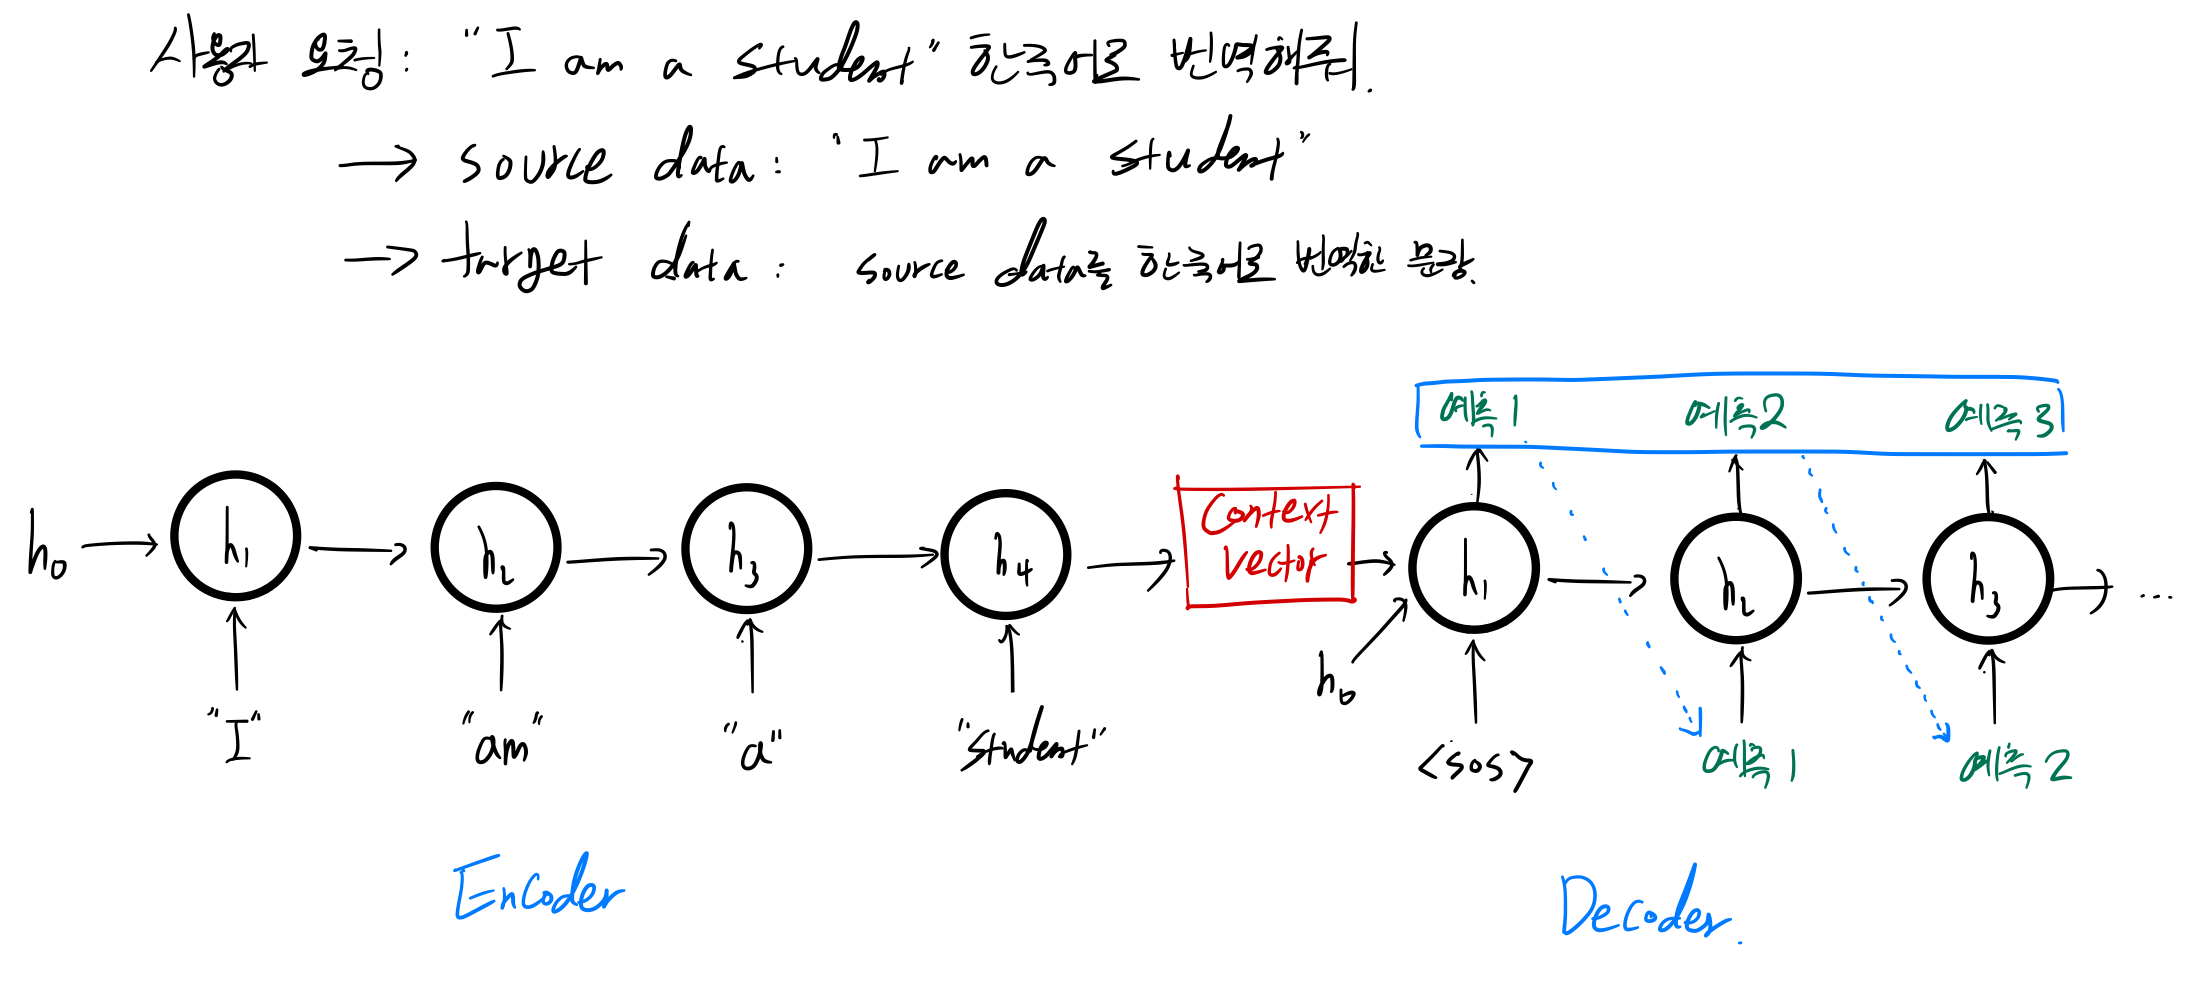 사용자 요청: "I am a student" 한국어로 번역해줘.
→ source data: "I am a student"
→ target data: source data를 한국어로 번역한 문장.
예측 1 예측2 예측 3
h₀ → h₁ → h₂ → h₃ → h₄ → Context vector → h₁ → h₂ → h₃ → ...
h₀
"I" "am" "a" "student" <sos> 예측 1 예측 2
Encoder Decoder.